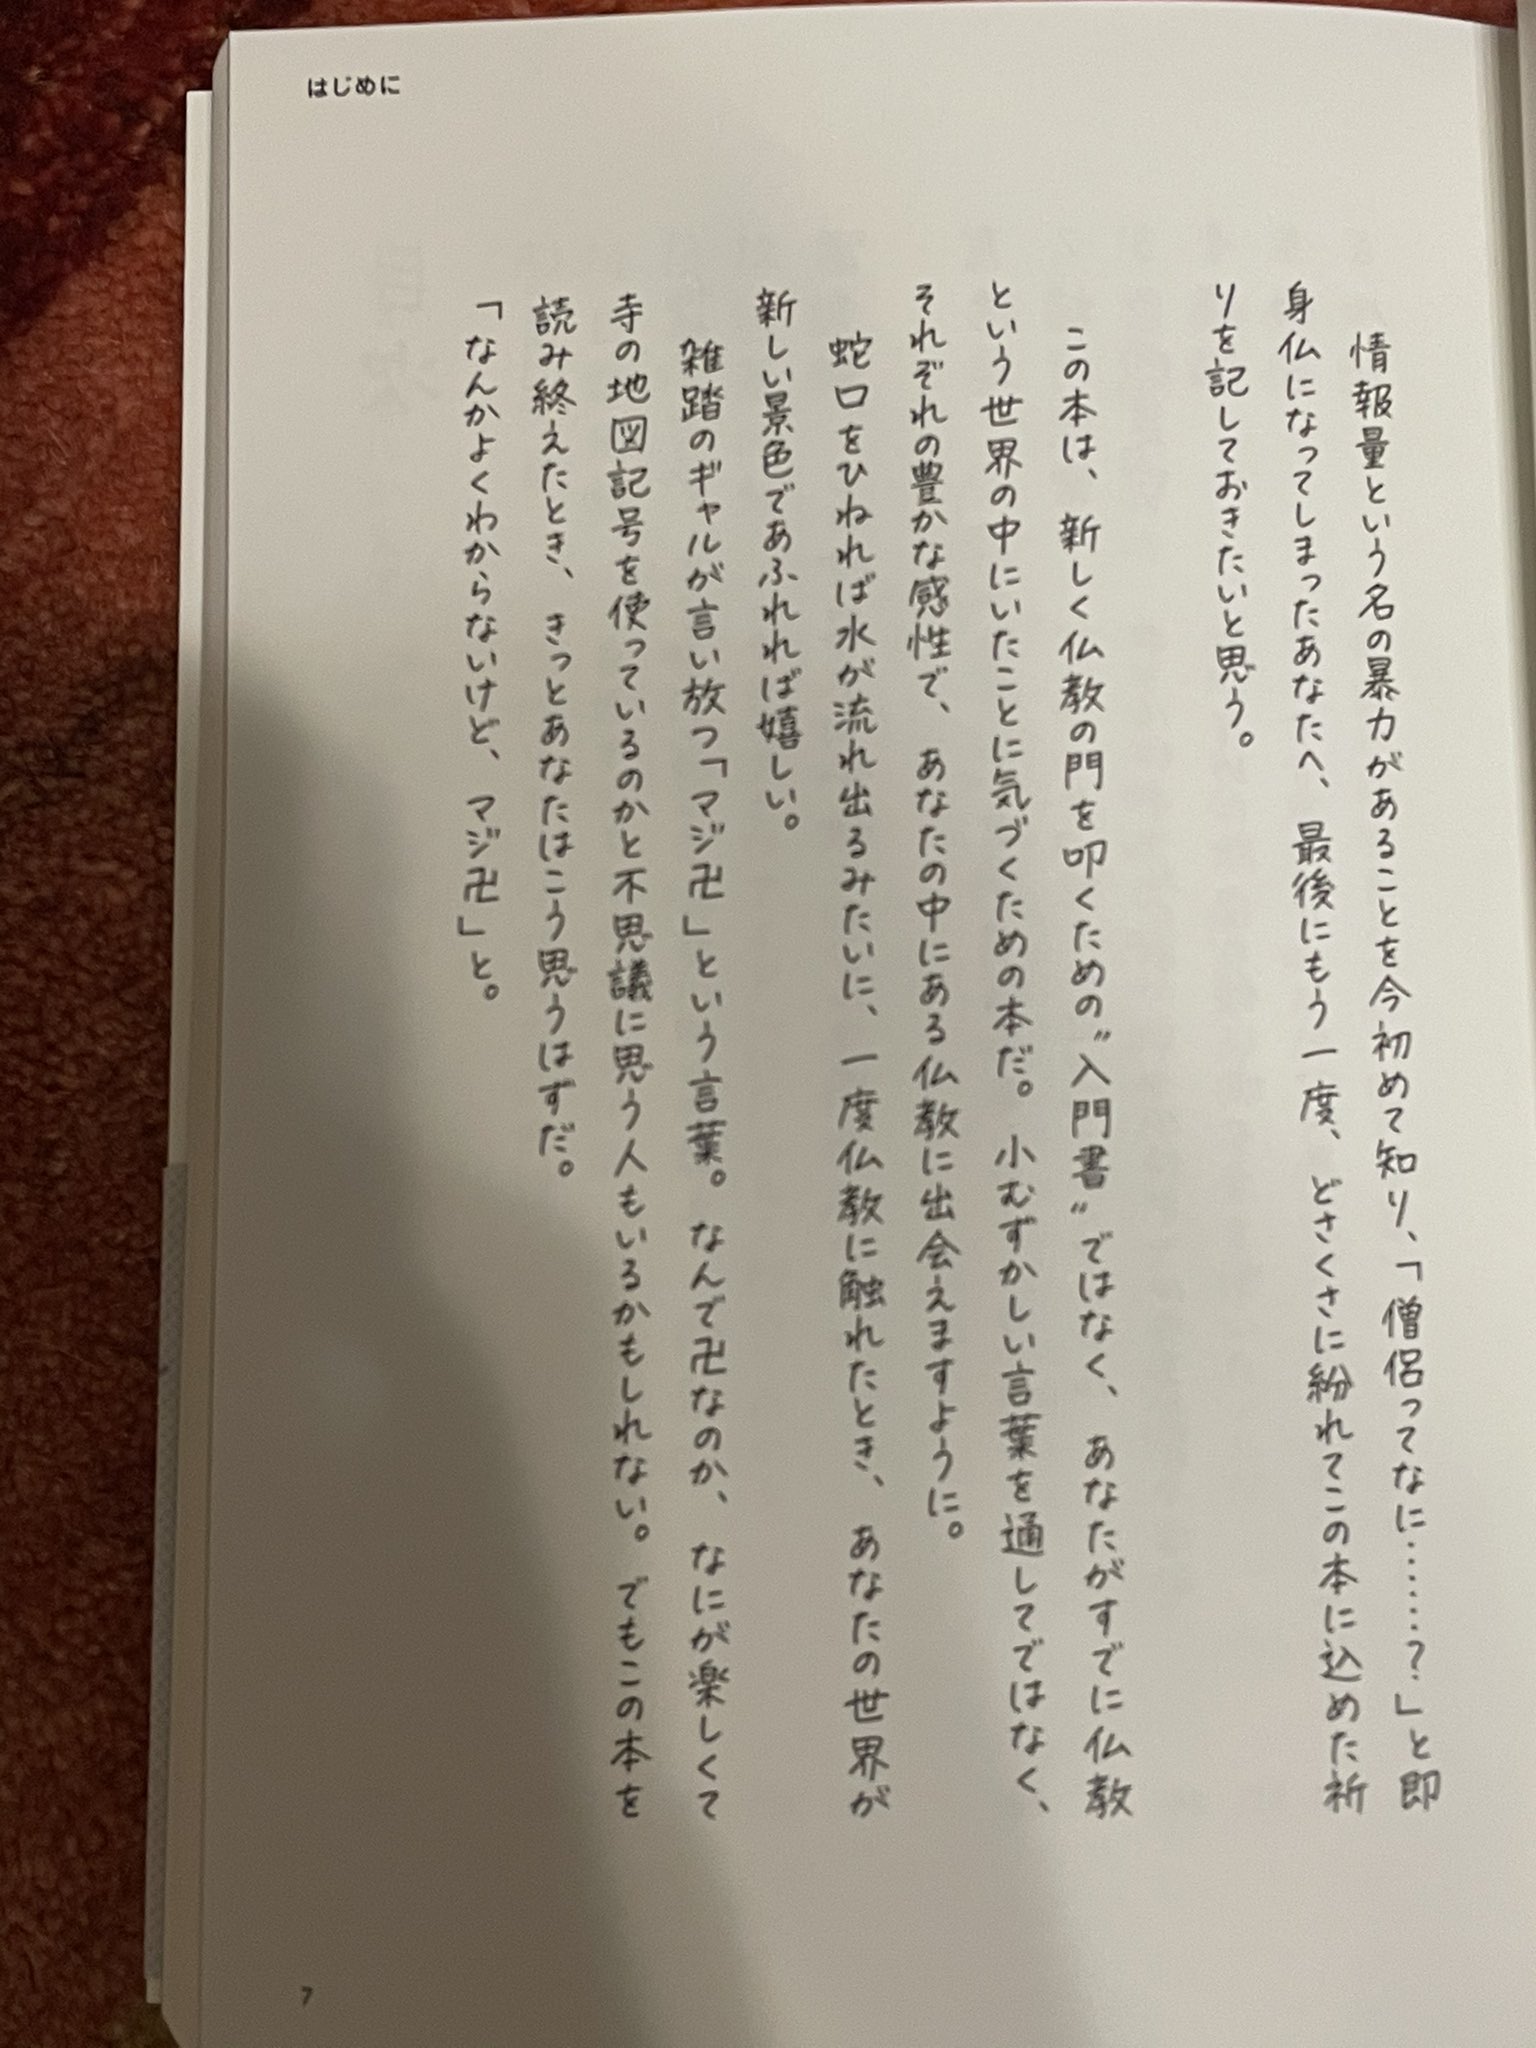 はじめに
情報量という名の暴力があることを今初めて知り、「僧侶ってなに……？」と即
身仏になってしまったあなたへ、最後にもう一度、どさくさに紛れてこの本に込めた祈
りを記しておきたいと思う。
この本は、新しく仏教の門を叩くための〝入門書〟ではなく、あなたがすでに仏教
という世界の中にいたことに気づくための本だ。小むずかしい言葉を通してではなく、
それぞれの豊かな感性で、あなたの中にある仏教に出会えますように。
蛇口をひねれば水が流れ出るみたいに、一度仏教に触れたとき、あなたの世界が
新しい景色であふれれば嬉しい。
雑踏のギャルが言い放つ「マジ卍」という言葉。なんで卍なのか、なにが楽しくて
寺の地図記号を使っているのかと不思議に思う人もいるかもしれない。でもこの本を
読み終えたとき、きっとあなたはこう思うはずだ。
「なんかよくわからないけど、マジ卍」と。
7